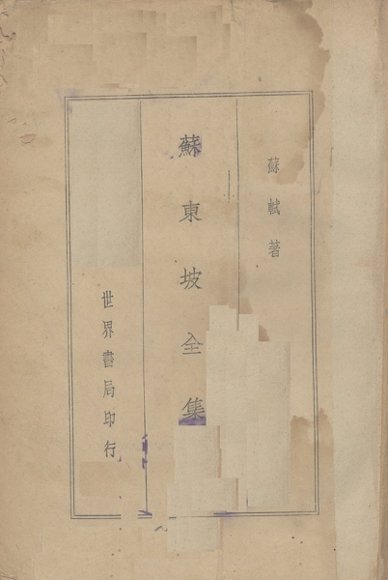 蘇軾著
蘇東坡全集
世界書局印行